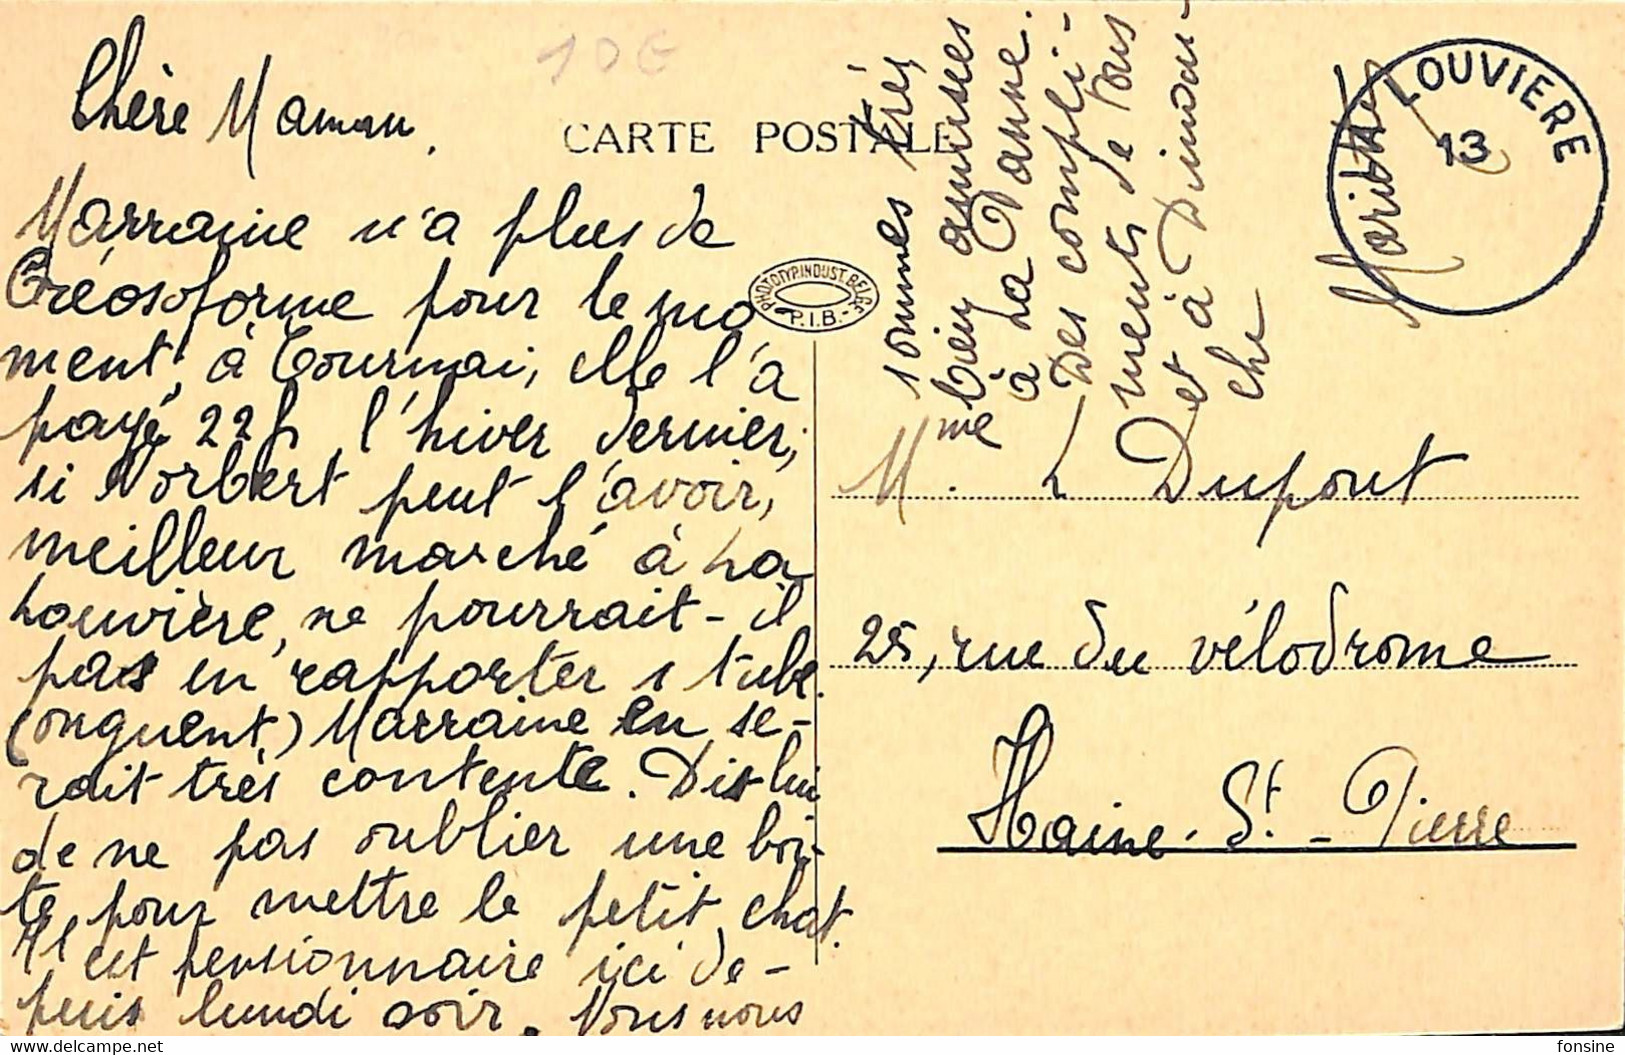 10E
CARTE POSTALE
Chère Maman,
Marraine n'a plus de
Créosoforme pour le mo
ment, à Tournai, elle l'a
payé 22 f. l'hiver dernier;
si Norbert peut l'avoir,
meilleur marché à La
Louvière, ne pourrait-il
pas en rapporter 1 tube.
(onguent.) Marraine en se-
rait très contente. Dis lui
de ne pas oublier une boi-
te pour mettre le petit chat.
Il est pensionnaire ici de-
puis lundi soir. Nous nous
sommes très
bien amusées
à La Panne.
Des compli-
ments de Nous
et à Diman-
che
PHOTOTYP. INDUST. BELGE
P.I.B.
LA LOUVIERE
13
Mme L Dupont
25, rue du vélodrome
Haine-St.-Pierre
fonsine